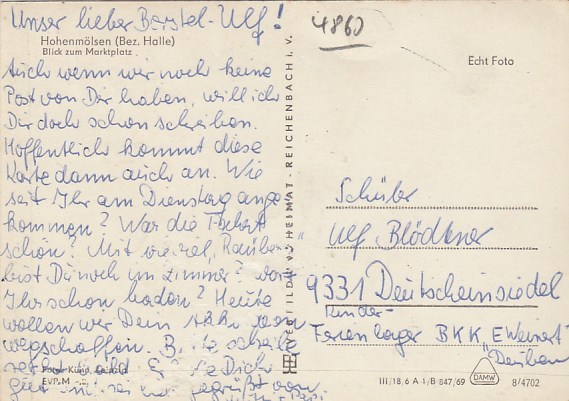 Unser lieber Bastel-Ulf!
Hohenmölsen (Bez. Halle)
Blick zum Marktplatz
Auch wenn wir noch keine
Post von Dir haben, will ich
Dir doch schon schreiben.
Hoffentlich kommt diese
Karte dann auch an. Wie
seit Ihr am Dienstag ange
kommen? War die Fahrt
schön? Mit wieviel "Räuber
bist Du noch im Zimmer? Wart
Ihr schon baden? Heute
wollen wir Dein
wegschaffen. schreibe
bald
gegrüßt von
Foto:
EVP-M
VEB BILD UND HEIMAT · REICHENBACH I. V.
4860
Echt Foto
Schüler
Ulf Blödtner
9331 Deutscheinsiedel
Kinder-
Ferienlager BKK "E Weinert"
Deuben
III/18/6 A 1/B 847/69
DAMW
8/4702